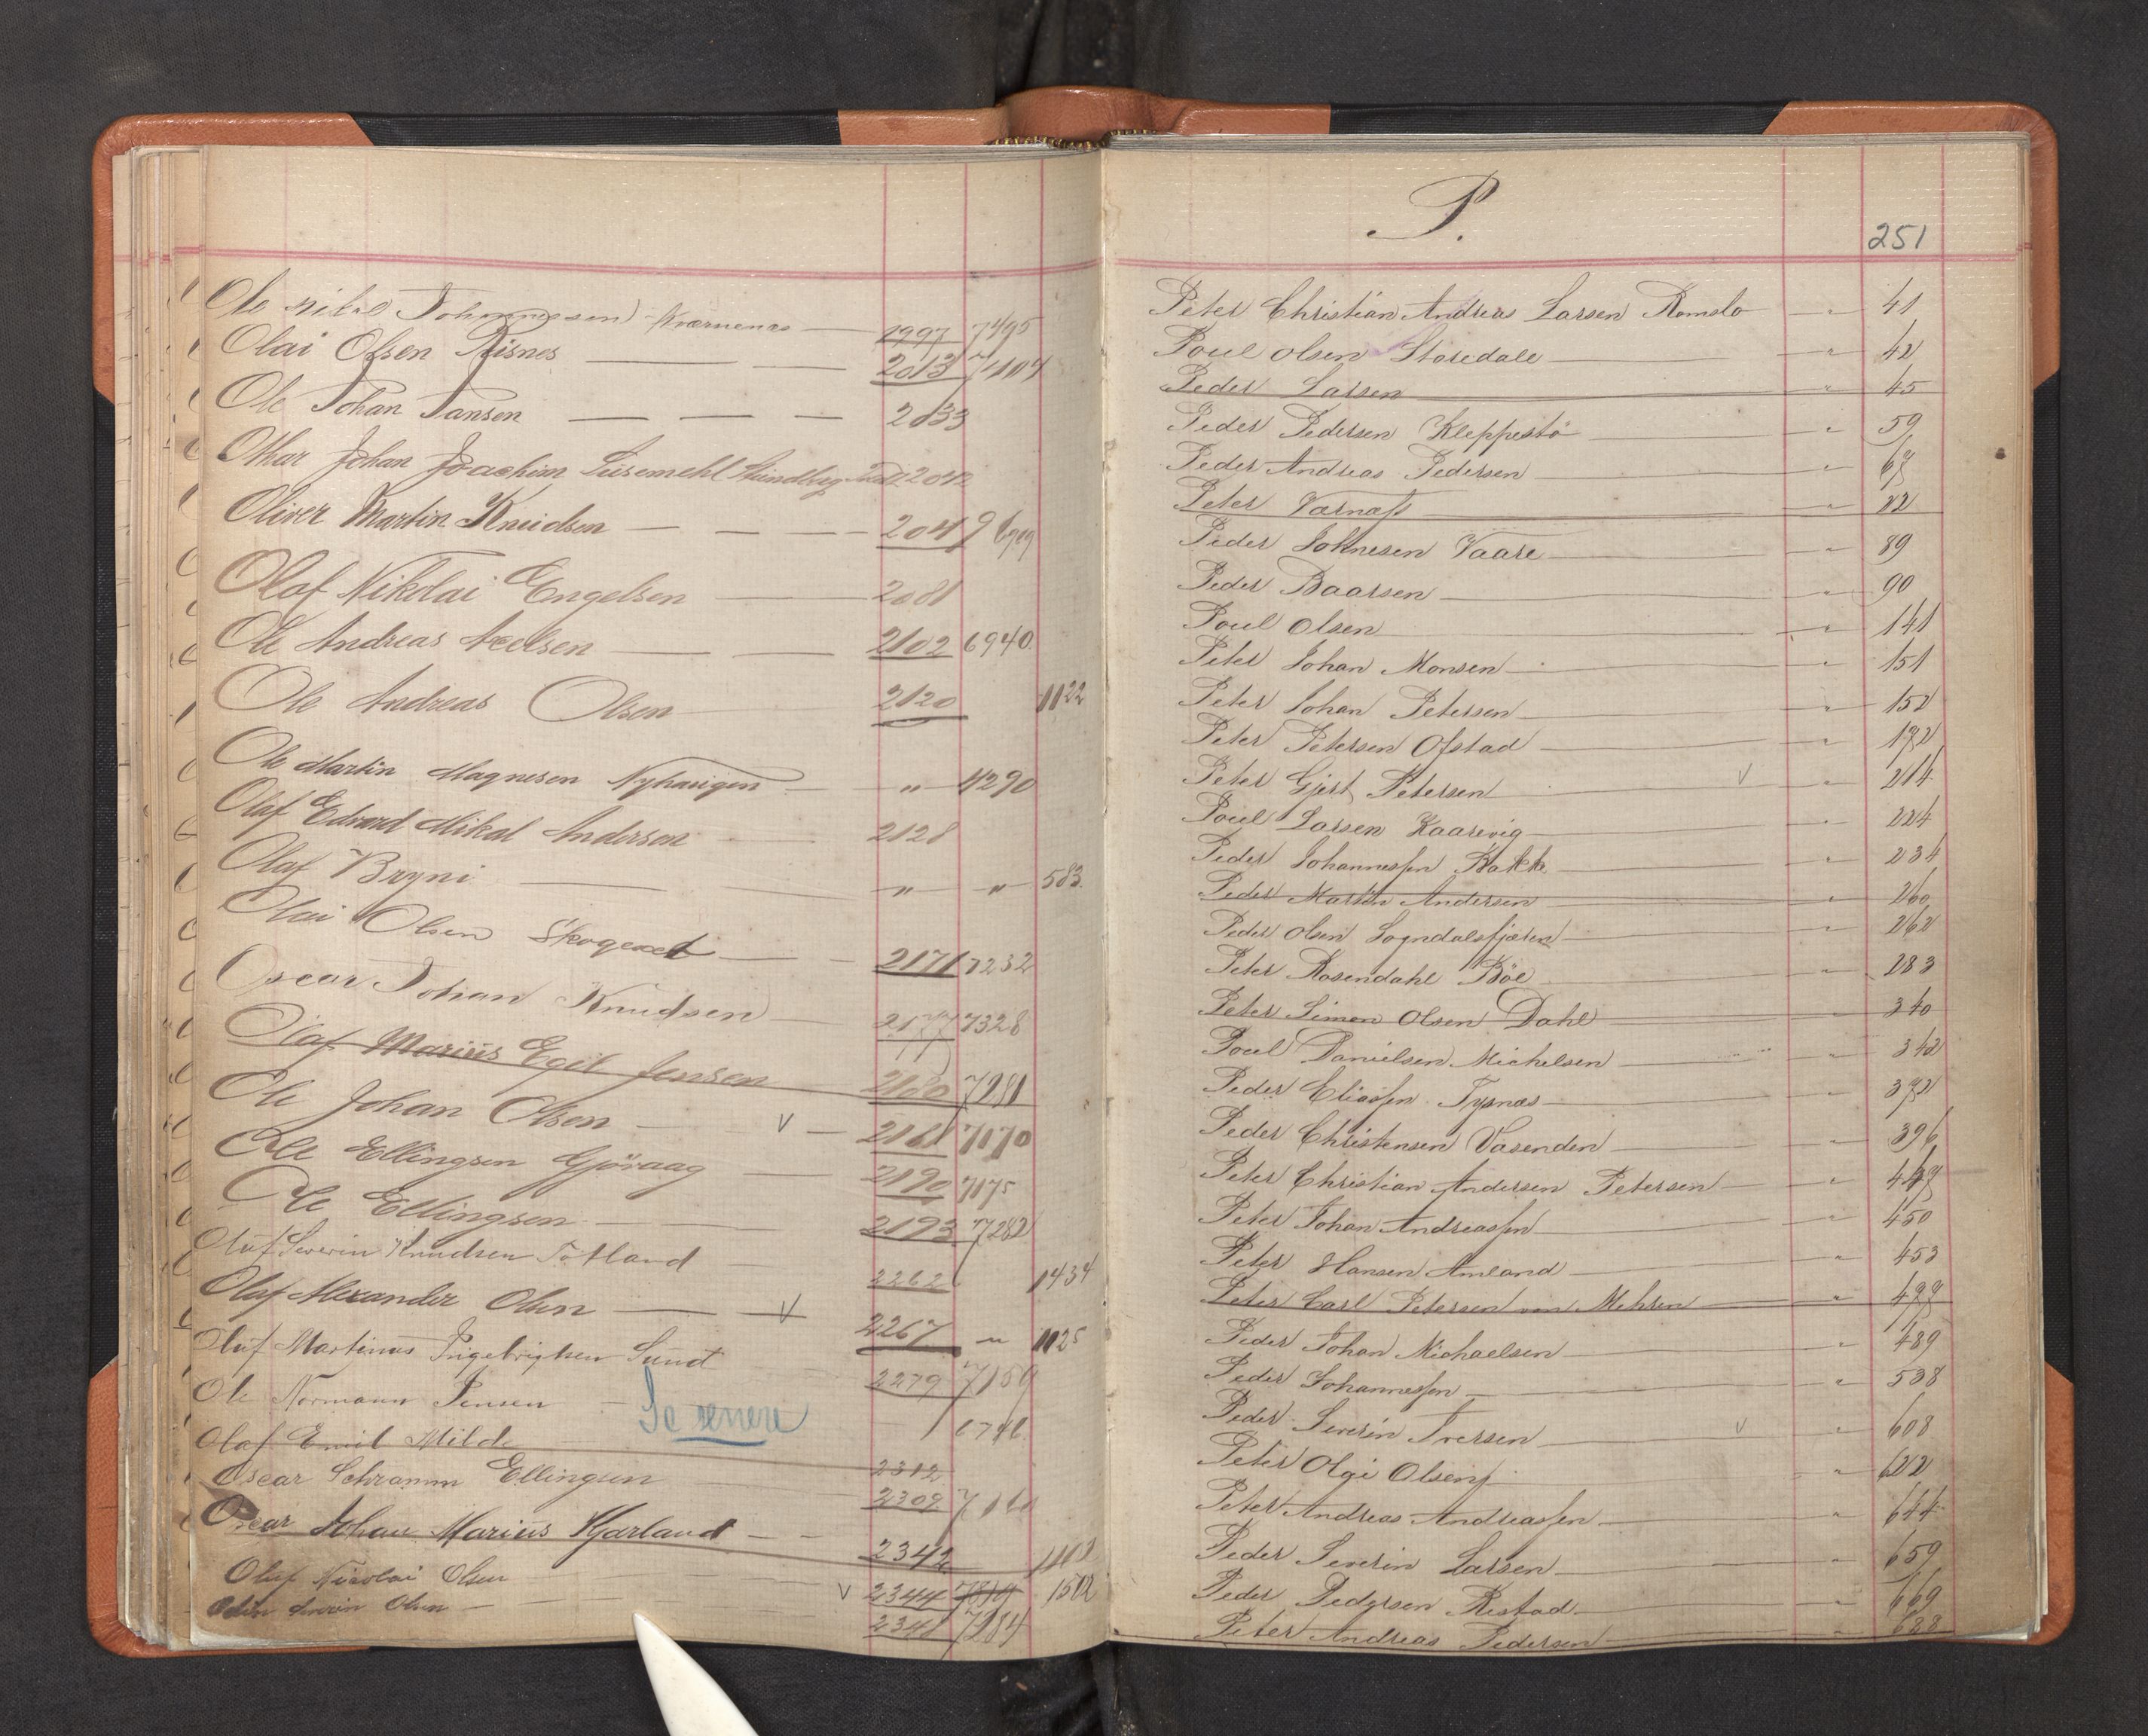 Ole Johannessen Kværnenes — 1997 7495
Olai Olsen Risnes — — 2013 7404
Ole Johan Jansen — — — 2033
Othar Johan Joachim Süsemehl Stundberg
Oliver Martin Knudsen — — — 2049 6909
Olaf Nikolai Engelsen — 2081
Ole Andreas Axelsen — — 2102 6940
Ole Andreas Olsen 2120 1122
Ole Martin Magnesen Nyhaugen — „ 4290
Olaf Edvard Mikal Andersen — 2128
Olaf Bryni — „ „ 583
Olai Olsen Skogexel — — 2171 7232
Oscar Johan Knudsen — 2177 7328
Olaf Marius Egil Jensen 2180 7281
Ole Johan Olsen — V — 2161 7170
Ole Ellingsen Gjöraag — 2190 7175
Ole Ellingsen — 2193 7282
Oluf Severin Knudsen Totland — 2262 1434
Olaf Alexander Olsen — V 2267 „ 1125
Oluf Martinus Ingebrigtsen Sund 2279 7159
Ole Normann Jensen
Se senere
Olaf Emil Milde 2312
Oscar Schramm Ellingsen 2309
Oscar Johan Marius Hjarland — 2342
Oluf Nicolai Olsen V 2344 7819 1502
Odin Severin Olsen — 2348 7284
P.
251
Peter Christian Andreas Larsen Romslo — „ 41
Poul Olsen Storedale — „ 42
Peder Larsen — „ 45
Peder Pedersen Kleppestö — „ 59
Peder Andreas Pedersen — „ 67
Peter Varnaß — „ 82
Peder Johnesen Vaare — „ 89
Peder Baarsen — „ 90
Poul Olsen — „ 141
Peter Johan Monsen — „ 151
Peter Johan Petersen — „ 152
Peter Petersen Ofstad — „ 172
Peter Gjert Petersen V „ 214
Poul Larsen Kaarevig — „ 224
Peder Johannesßen Bakke — „ 234
Peder Martin Andersen — „ 260
Peder Olsen Sogndalsfjæren — „ 262
Peter Rosendahl Böe — „ 283
Peter Simon Olsen Dahl — „ 340
Poul Danielsen Michelsen — „ 342
Peder Eliasßen Tysnæs — „ 372
Peder Christensen Vasenden — „ 396
Peter Christian Andersen Petersen — „ 447
Peter Johan Andreasßen — „ 450
Peter Hansen Amland — „ 453
Peter Carl Petersen von Mehren — „ 477
Peder Johan Michaelsen — „ 489
Peder Johannesßen — „ 538
Peder Severin Iversen — V „ 608
Peter Olai Olsen — „ 622
Peter Andreas Andreasßen — „ 644
Peder Severin Larsen — „ 659
Peder Pedersen Ristad — „ 669
Peter Andreas Pedersen — „ 688